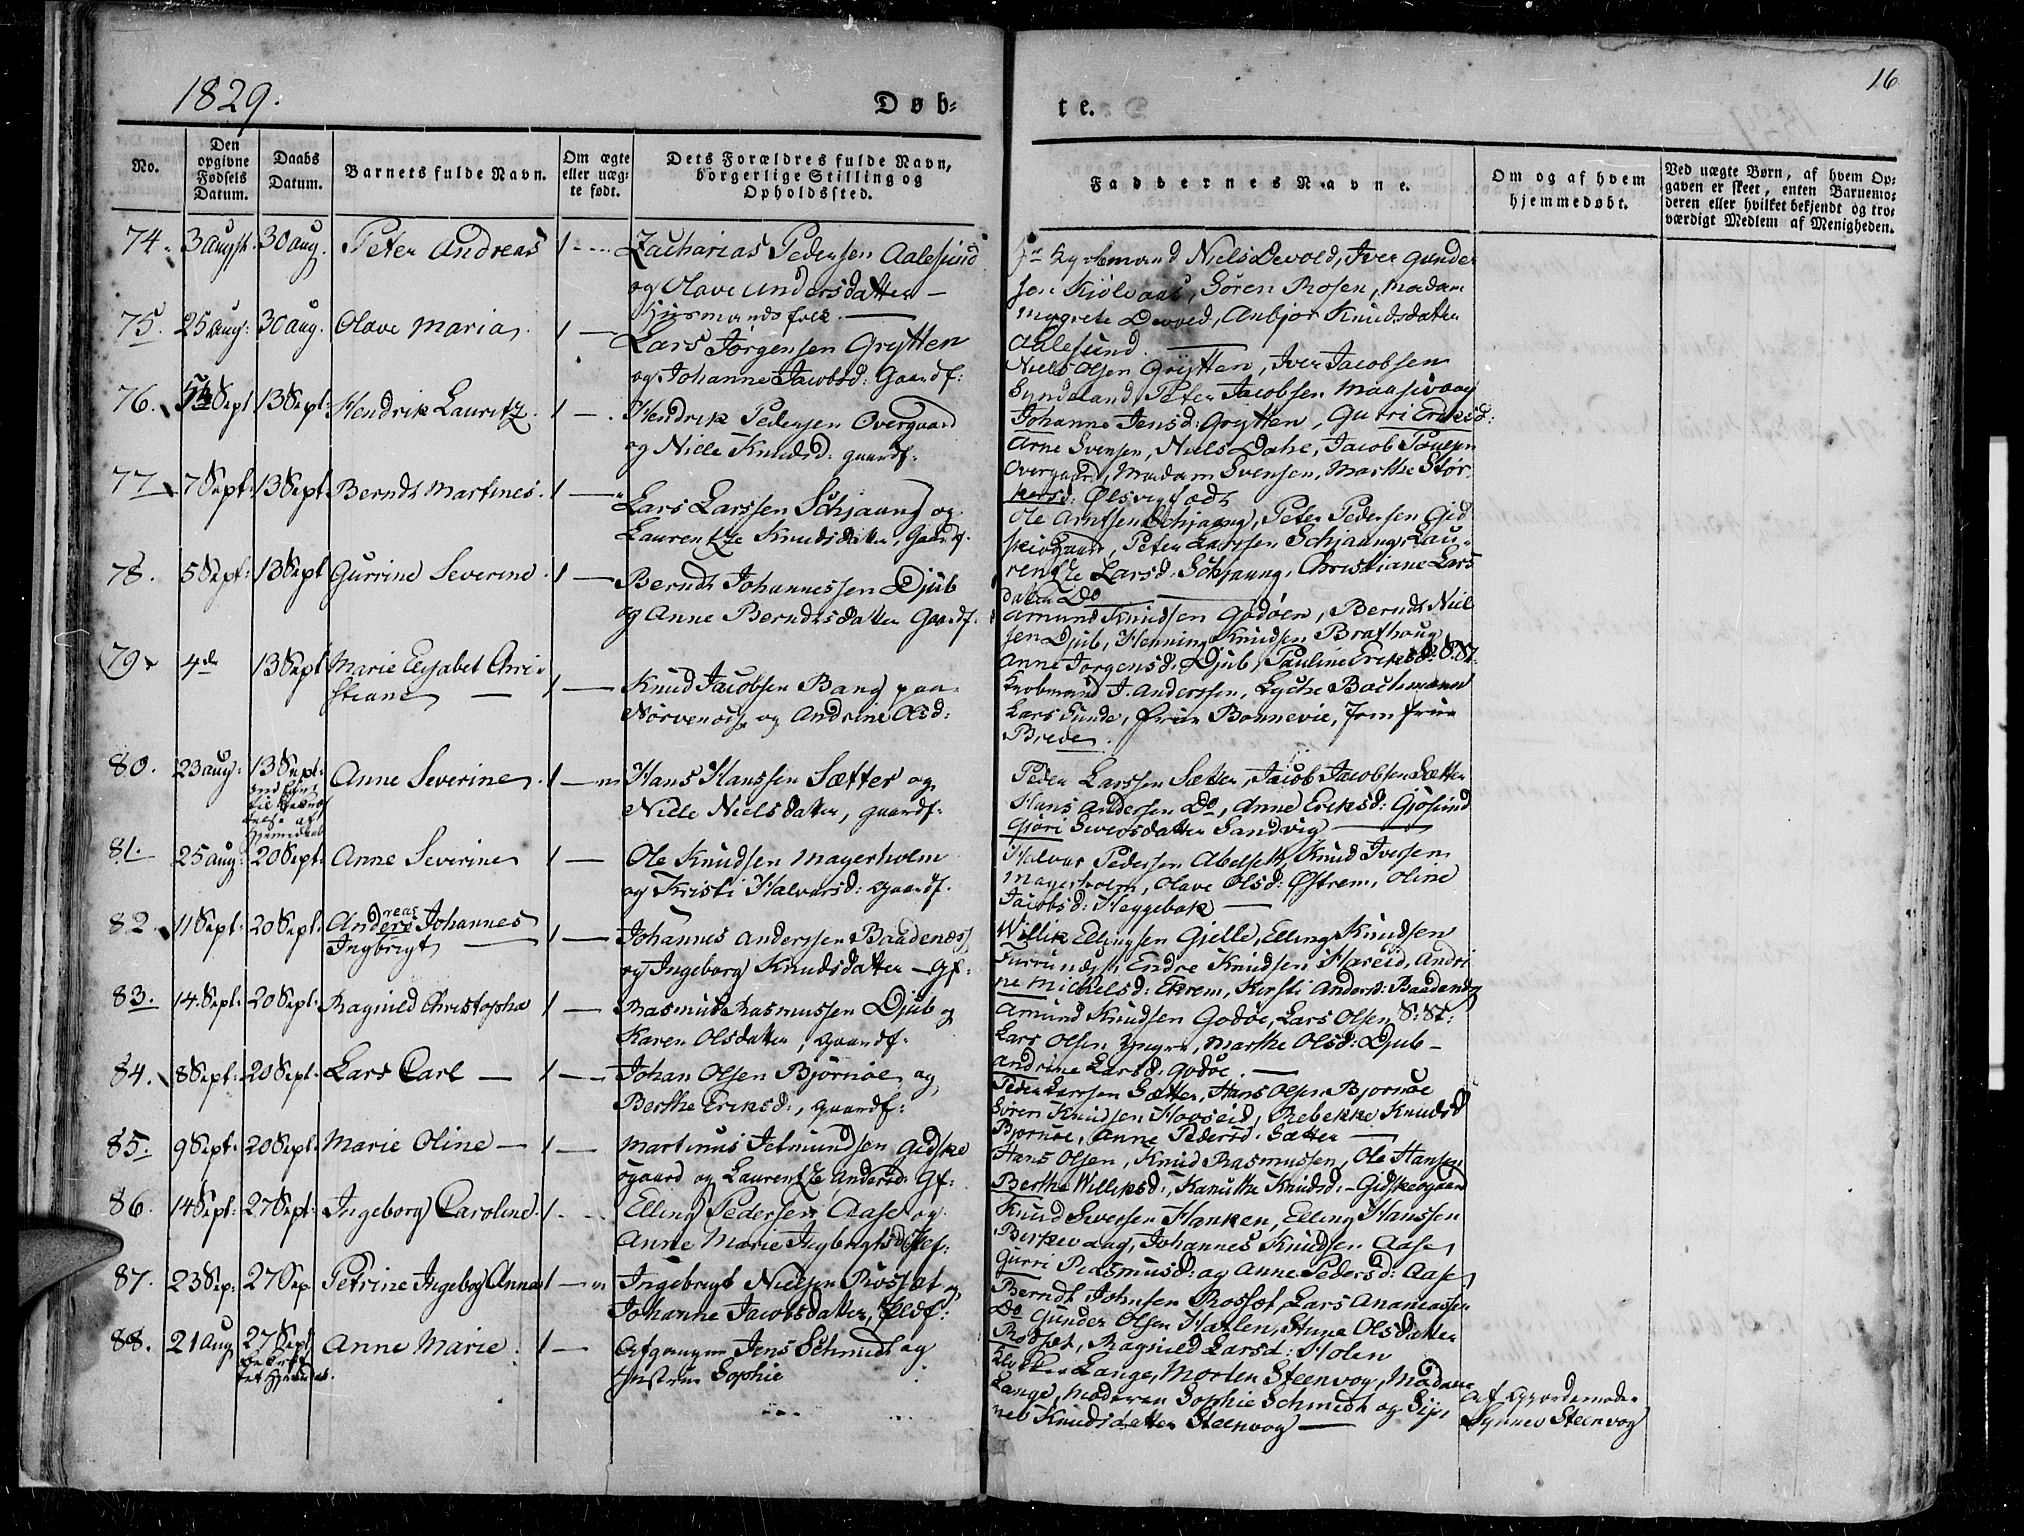 1829.
Døb-
te.
16
No.
Den opgivne Fødsels Datum.
Daabs Datum.
Barnets fulde Navn.
Om ægte eller uæg- te født.
Dets Forældres fulde Navn, borgerlige Stilling og Opholdssted.
Faddernes Navne.
Om og af hvem hjemmedøbt.
Ved uægte Børn, af hvem Op- gaven er skeet, enten Barnemo- deren eller hvilket bekjendt og tro- værdigt Medlem af Menigheden.
74. 3 Augst. 30 Aug. Peter Andreas 1 Zacharias Pedersen Aalesund
og Olave Andersdatter
Huusmandsfolk
Kjøbmand Niels Devold, Iver Gunder
sen Kiølaas, Søren Rosen, Madam
Devold, Anbjør Knudsdatter
Aalesund
75. 25 Aug: 30 Aug. Olave Maria 1 Lars Jørgensen Grytten
og Johanne Jacobsd: Gaardf:
Niels Olsen Grytten, Iver Jacobsen
Syndeland, Peter Jacobsen Maaseivaag
Johanne Jensd: Grytten, Gutri Eriksd:
76. 5te Sept 13 Sept Hendrik Lauritz 1 Hendrik Pedersen Overgaard
og Nille Knudsd: gaardf:
Arne Svensen, Niels Dahe, Jacob Poulsen
Overgaard, Madam Svensen, Marthe Stør
kersd: Ølsvig Sædt
77 7 Sept: 13 Sept Berndt Martines 1 Lars Larssen Schjaang og
Laurentze Knudsdatter, Gaardf.
Ole Arntsen Schjaang, Peter Pedersen Gid
skiøgaard, Peter Larssen Schjaang, Lau-
rentze Larsd: Schjaang, Christiane Lars
datter Do
78. 5 Sept: 13 Sept Gurrine Severine 1 Berndt Johannessen Djub
og Anne Berndtsdatter Gaardf.
Amund Knudsen Godøen, Berndt Niel
sen Djub, Henning Knudsen Brathoug
Anne Jørgensd: Djub, Pauline Eriksd: S:St:
79 4de 13 Sept Marie Elisabet Chri-
stiane 1 Knud Jacobsen Bang paa
Nørvenøe og Andrine Olsd:
Kjøbmand J. Anderssen, Lyche Bachmann
Lars Funde, Frue Bonnevie, Jomfrue
Brede.
80. 23 Aug: 13 Sept: Anne Severine 1 Hans Hanssen Sætter og
Nille Nielsdatter, gaardf:
Peder Larssen Sætter, Jacob Jacobsen Sætter
Hans Andersen Do, Anne Eriksd: Gjøsund
Gjøri Sversdatter Sandvig
81. 25 Aug: 20 Sept: Anne Severine 1 Ole Knudsen Magerholm
og Kristi Halvarsd: Gaardf.
Halvar Pedersen Abelseth, Knud Iversen
Magerholm, Olave Olsd: Østrem, Oline
Jacobsd: Heggebak
82. 11 Sept: 20 Sept. Andreas Johannes
Ingbrigt 1 Johannes Anderssen Baadenæs
og Ingeborg Knudsdatter Gf:
Willik Ellingsen Gjelle, Elling Knudsen
Endre Knudsen Hareid, Andri
ne Michelsd: Ekrem, Kirsti Andersd: Baadenæs
83. 14. Sept: 20 Sept: Ragnild Christopha 1 Rasmus Rasmussen Djub og
Karen Olsdatter, Gaardf:
Amund Knudsen Godøe, Lars Olsen S:St:
Lars Olsen Yngre, Marthe Olsd: Djub
Andrine Larsd: Godøe.
84. 8 Sept: 20 Sept. Lars Carl 1 Johan Olsen Bjørnøe og
Berthe Eriksd:, Gaardf:
Peder Larssen Sætter, Hans Olsen Bjørnøe
Søren Knudsen Hovseid, Rebekke Knudsd
Bjørnøe, Anne Pedersd. Sætter
85. 9 Sept: 20 Sept. Marie Oline 1 Martinus Jetmundsen Gidske
øgaard og Laurentze Andersd: Gf:
Hans Olsen, Knud Rasmussen, Ole Hansen
Berthe Williksd:, Kanutte Knudsd: Gidskegaard
86. 14 Sept: 27 Sept: Ingeborg Caroline. 1 Elling Pedersen Aase og
Anne Marie Ingbrigtsd
Knud Sversen Flanken, Elling Hanssen
Berkevaag, Johannes Knudsen Aase
Gurri Rasmusd: og Anne Pedersd: Aase
87. 23 Sep: 27 Sep Petrine Ingebor Anna 1 Ingebrigt Nielsen Rossæt og
Johanne Jacobsdatter,
Berndt Johnsen Rossæt, Lars Ananiassen
Do Gunder Olsen Hatlen, Stine Olsdatter
Rossæt, Ragnild Larsd: Holen
88. 21 Aug 27 Sept Anne Marie. 1 Afgangne Jens Schmidt og
Hustrue Sophie
Klokker Lange, Morten Steenvog, Madame
Lange, Moderen Sophie Schmidt og
Knudsdatter Steenvog
Af Gjordemoder
Synnev Steenvog